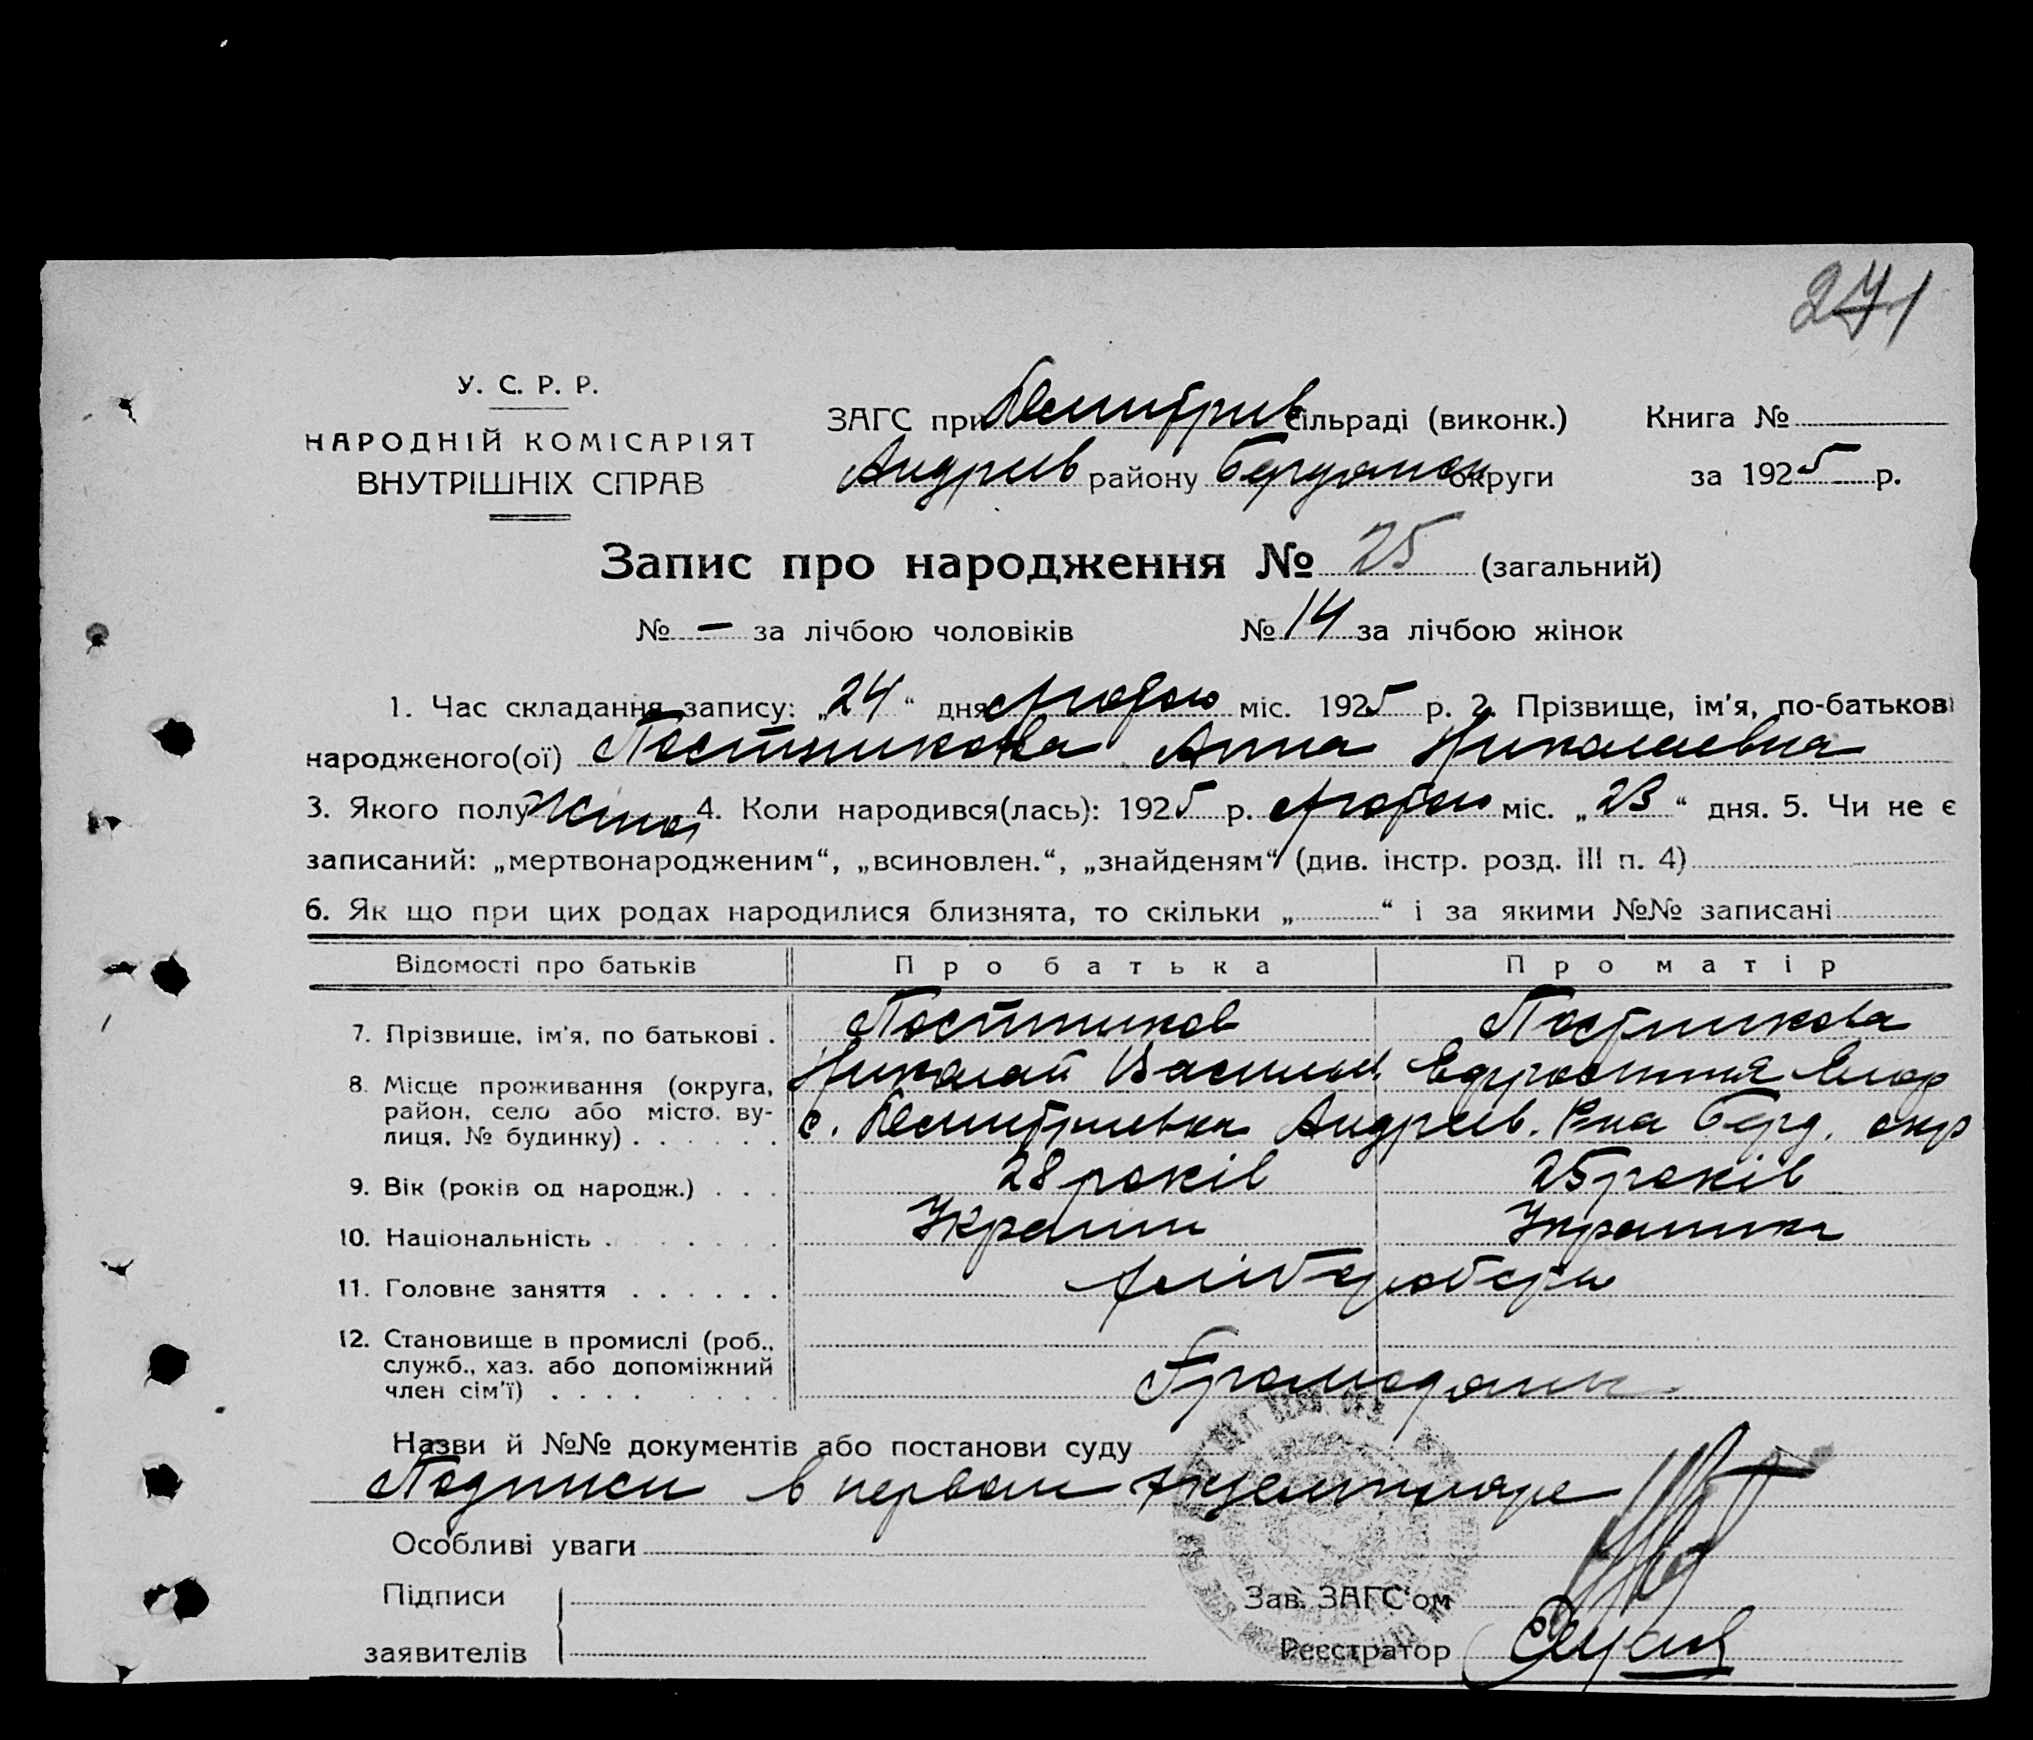 271
У. С. Р. Р.
НАРОДНІЙ КОМІСАРІЯТ
ВНУТРІШНІХ СПРАВ
ЗАГС при Дмитрив сільраді (виконк.) Книга №
Андреев району Бердянськ округи за 1925 р.
Запис про народження № 25 (загальний)
№ — за лічбою чоловіків № 14 за лічбою жінок
1. Час складання запису: „24“ дня лютого міс. 1925 р. 2. Прізвище, ім'я, по-батькові
народженого(ої) Постникова Анна Николаевна
3. Якого полу жіноч 4. Коли народився(лась): 1925 р. лютого міс. „23“ дня. 5. Чи не є
записаний: „мертвонародженим“, „всиновлен.“, „знайденям“ (див. інстр. розд. III п. 4)
6. Як що при цих родах народилися близнята, то скільки „ “ і за якими №№ записані
Відомості про батьків Про батька Про матір
7. Прізвище, ім'я, по батькові . Постников Постникова
Николай Василь Ефросиния Егор
8. Місце проживання (округа,
район, село або місто, ву-
лиця, № будинку) . . . . . . с. Дмитриевка Андреев. Р-на Берд. окр
9. Вік (років од народж.) . . . 28 років 25 років
10. Національність . . . . . . . Україн Українка
11. Головне заняття . . . . . . хліборобери
12. Становище в промислі (роб.,
служб., хаз. або допоміжний
член сім'ї) . . . . . . . . Громадяни
Назви й №№ документів або постанови суду
Подписи в первом экземпляре
Особливі уваги
Підписи
заявителів
Зав. ЗАГС'ом
Реєстратор